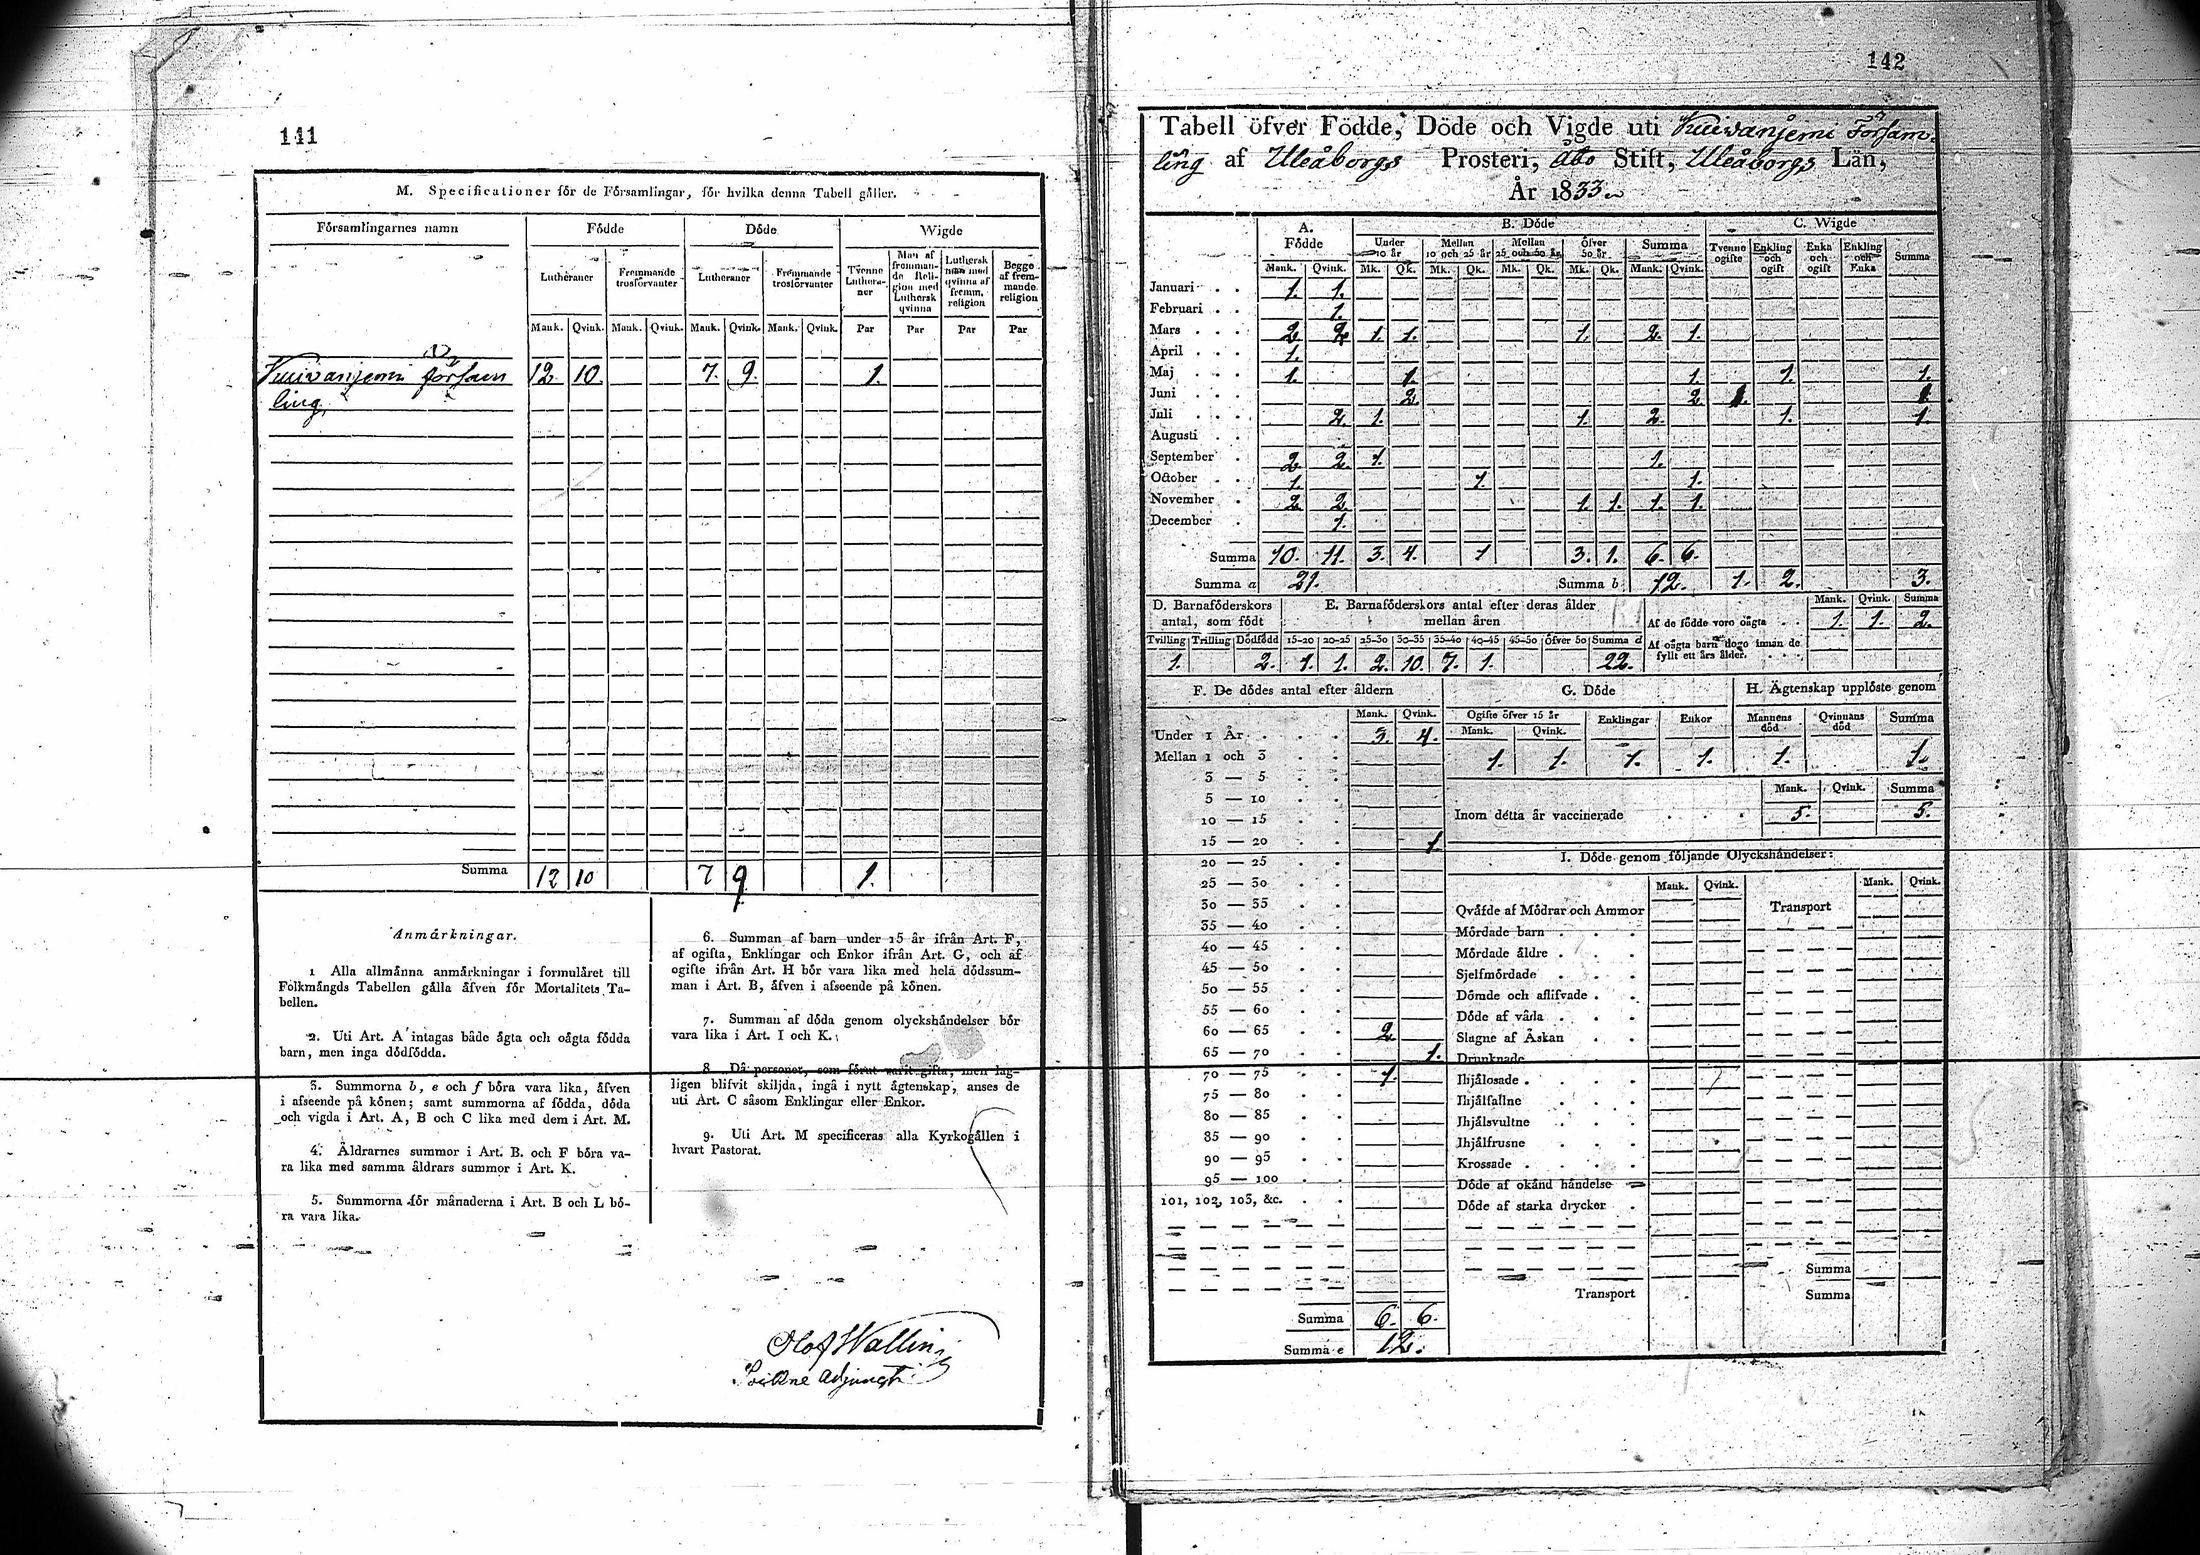 141
M. Specificationer för de Församlingar, för hvilka denna Tabell gäller.
Församlingarnes namn Födde Döde Wigde
Lutheraner Fremmande trosförvanter Lutheraner Fremmande trosförvanter Tvenne Lutheraner Man af fremmande Religion med Luthersk qvinna Luthersk man med qvinna af fremm. religion Begge af fremmande religion
Mank. Qvink. Mank. Qvink. Mank. Qvink. Mank. Qvink. Par Par Par Par
Kuivanjemi församling 12. 10. 7. 9. 1.
Summa 12 10 7 9 1.
Anmärkningar.
1 Alla allmänna anmärkningar i formuläret till
Folkmängds Tabellen gälla äfven för Mortalitets Ta-
bellen.
2. Uti Art. A intagas både ägta och oägta födda
barn, men inga dödfödda.
3. Summorna b, e och f böra vara lika, äfven
i afseende på könen; samt summorna af födda, döda
och vigda i Art. A, B och C lika med dem i Art. M.
4. Åldrarnes summor i Art. B. och F böra va-
ra lika med samma åldrars summor i Art. K.
5. Summorna för månaderna i Art. B och L bö-
ra vara lika.
6. Summan af barn under 15 år ifrån Art. F,
af ogifta, Enklingar och Enkor ifrån Art. G, och af
ogifte ifrån Art. H bör vara lika med hela dödssum-
man i Art. B, äfven i afseende på könen.
7. Summan af döda genom olyckshändelser bör
vara lika i Art. I och K.
8. Då personer, som förut varit gifta, men lag-
ligen blifvit skiljda, ingå i nytt ägtenskap, anses de
uti Art. C såsom Enklingar eller Enkor.
9. Uti Art. M specificeras alla Kyrkogällen i
hvart Pastorat.
Olof Wallin
142
Tabell öfver Födde, Döde och Vigde uti Kuivanjemi Försam-
ling af Uleåborgs Prosteri, Åbo Stift, Uleåborgs Län,
År 1833
A. Födde B. Döde C. Wigde
Under 10 år Mellan 10 och 25 år Mellan 25 och 50 år Öfver 50 år Summa Tvenne ogifte Enkling och ogift Enka och ogift Enkling och Enka Summa
Mank. Qvink. Mk. Qk. Mk. Qk. Mk. Qk. Mk. Qk. Mank. Qvink.
Januari 1. 1.
Februari 1.
Mars 2 2 1. 1. 1. 2. 1.
April 1.
Maj 1. 1. 1. 1. 1.
Juni 2 2 1. 1
Juli 2. 1. 1. 2. 1. 1.
Augusti
September 2 2. 1. 1.
October 1. 1. 1.
November 2 2. 1. 1. 1. 1.
December 1.
Summa 10. 11. 3. 4. 1 3. 1. 6. 6.
Summa a 21. Summa b 12. 1. 2. 3.
D. Barnaföderskors antal, som födt E. Barnaföderskors antal efter deras ålder mellan åren Mank. Qvink. Summa
Tvilling Trilling Dödfödd 15-20 20-25 25-30 30-35 35-40 40-45 45-50 Öfver 50 Summa d
1. 2. 1. 1. 2. 10. 7. 1. 22.
Af de födde voro oägta 1. 1. 2.
Af oägta barn dogo innan de
fyllt ett års ålder.
F. De dödes antal efter åldern
Mank. Qvink.
Under 1 År 3. 4.
Mellan 1 och 3
3 — 5
5 — 10
10 — 15
15 — 20 1.
20 — 25
25 — 30
30 — 35
35 — 40
40 — 45
45 — 50
50 — 55
55 — 60
60 — 65 2
65 — 70 1.
70 — 75 1.
75 — 80
80 — 85
85 — 90
90 — 95
95 — 100
101, 102, 103, &c.
Summa 6. 6.
Summa e 12.
G. Döde
Ogifte öfver 15 år Enklingar Enkor
Mank. Qvink.
1. 1. 1. 1.
H. Ägtenskap upplöste genom
Mannens död Qvinnans död Summa
1. 1.
Mank. Qvink. Summa
Inom detta år vaccinerade 5. 5.
I. Döde genom följande Olyckshändelser:
Mank. Qvink. Mank. Qvink.
Qväfde af Mödrar och Ammor Transport
Mördade barn
Mördade äldre
Sjelfmördade
Dömde och aflifvade
Döde af våda
Slagne af Åskan
Drunknade
Ihjälosade
Ihjälfallne
Ihjälsvultne
Ihjälfrusne
Krossade
Döde af okänd händelse
Döde af starka drycker
Summa
Transport Summa